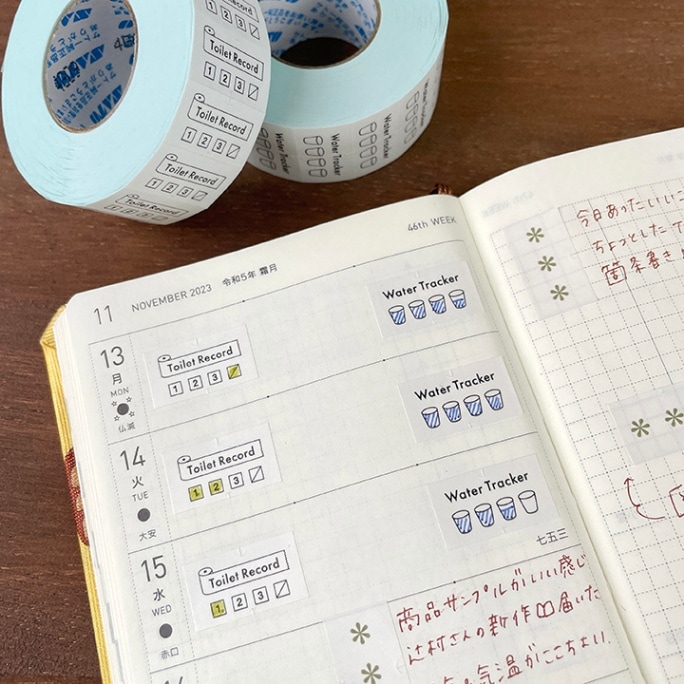 Toilet Record
1 2 3
Toilet Record
1 2 3
Toilet Record
1 2 3
Toilet Record
1 2 3
Toilet Record
Water Tracker
Water Tracker
Water Tracker
11 NOVEMBER 2023 令和5年 霜月
46th WEEK
13
月
MON
仏滅
Toilet Record
1 2 3
Water Tracker
14
火
TUE
大安
Toilet Record
1 2 3
Water Tracker
15
水
WED
赤口
Toilet Record
1 2 3
Water Tracker
七五三
商品サンプルがいい感じ
辻村さんの新作届いた
気温がここちよい
47th WEEK
今日あったいいこ
ちょっとした
箇条書き